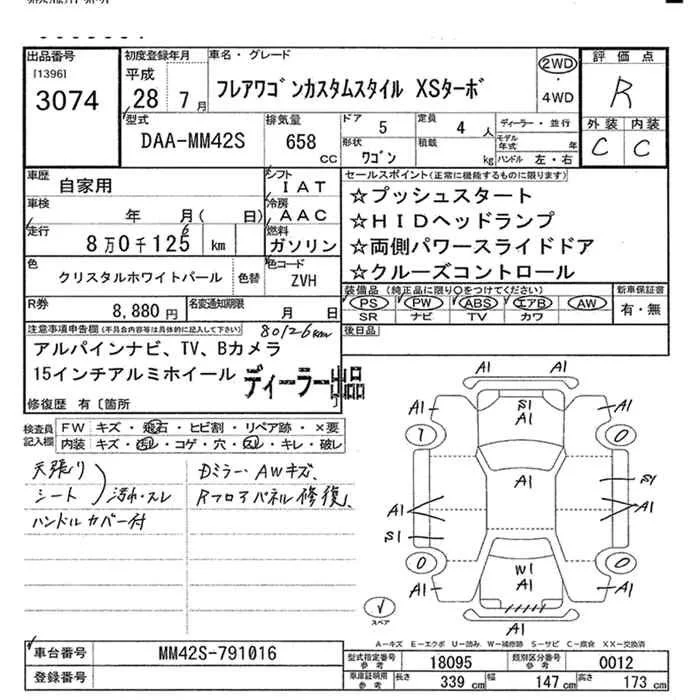 出品番号
[1396]
3074
初度登録年月
平成
28 7 月
車名・グレード
フレアワゴンカスタムスタイル XSターボ
2WD
4WD
評価点
R
外装 内装
C C
型式
DAA-MM42S
排気量
658
CC
ドア 5
定員 4 人
形状 ワゴン
積載 kg
ディーラー・並行
モデル年式 年
ハンドル 左・右
車歴 自家用
シフト IAT
車検 年 月( 日)
冷房 AAC
走行 8万0千125 6 km
燃料 ガソリン
色 クリスタルホワイトパール 色替
色コード ZVH
R券 8,880 円
名変通知期限 月 日
セールスポイント(正常に機能するものに限ります)
☆プッシュスタート
☆HIDヘッドランプ
☆両側パワースライドドア
☆クルーズコントロール
装備品 (純正品に限り○をつけてください)
PS PW ABS エアB AW
SR ナビ TV カワ
新車保証書
有・無
後日品
注意事項申告欄(不具合内容等は具体的に記入して下さい)
80126km
アルパインナビ、TV、Bカメラ
15インチアルミホイール
ディーラー出品
修復歴 有〔箇所 〕
検査員記入欄
FW キズ・飛石・ヒビ割・リペア跡・×要
内装 キズ・汚レ・コゲ・穴・スレ・キレ・破レ
天張り
シート ) 汚れ・スレ
ハンドルカバー付
Dミラー、AWキズ、
Rフロアパネル修復、
A1
A1 S1 A1
A1
7 0
A1
S1
A1 A1
S1
0 0
W1
A1 A1 A1
A1
√
スペア
A-キズ E-エクボ U-凹み W-補修跡 S-サビ C-腐食 XX-交換済
車台番号 MM42S-791016
登録番号
型式指定番号 参考 18095
類別区分番号 参考 0012
車庫証明用 参考 長さ 339 cm 幅 147 cm 高さ 173 cm